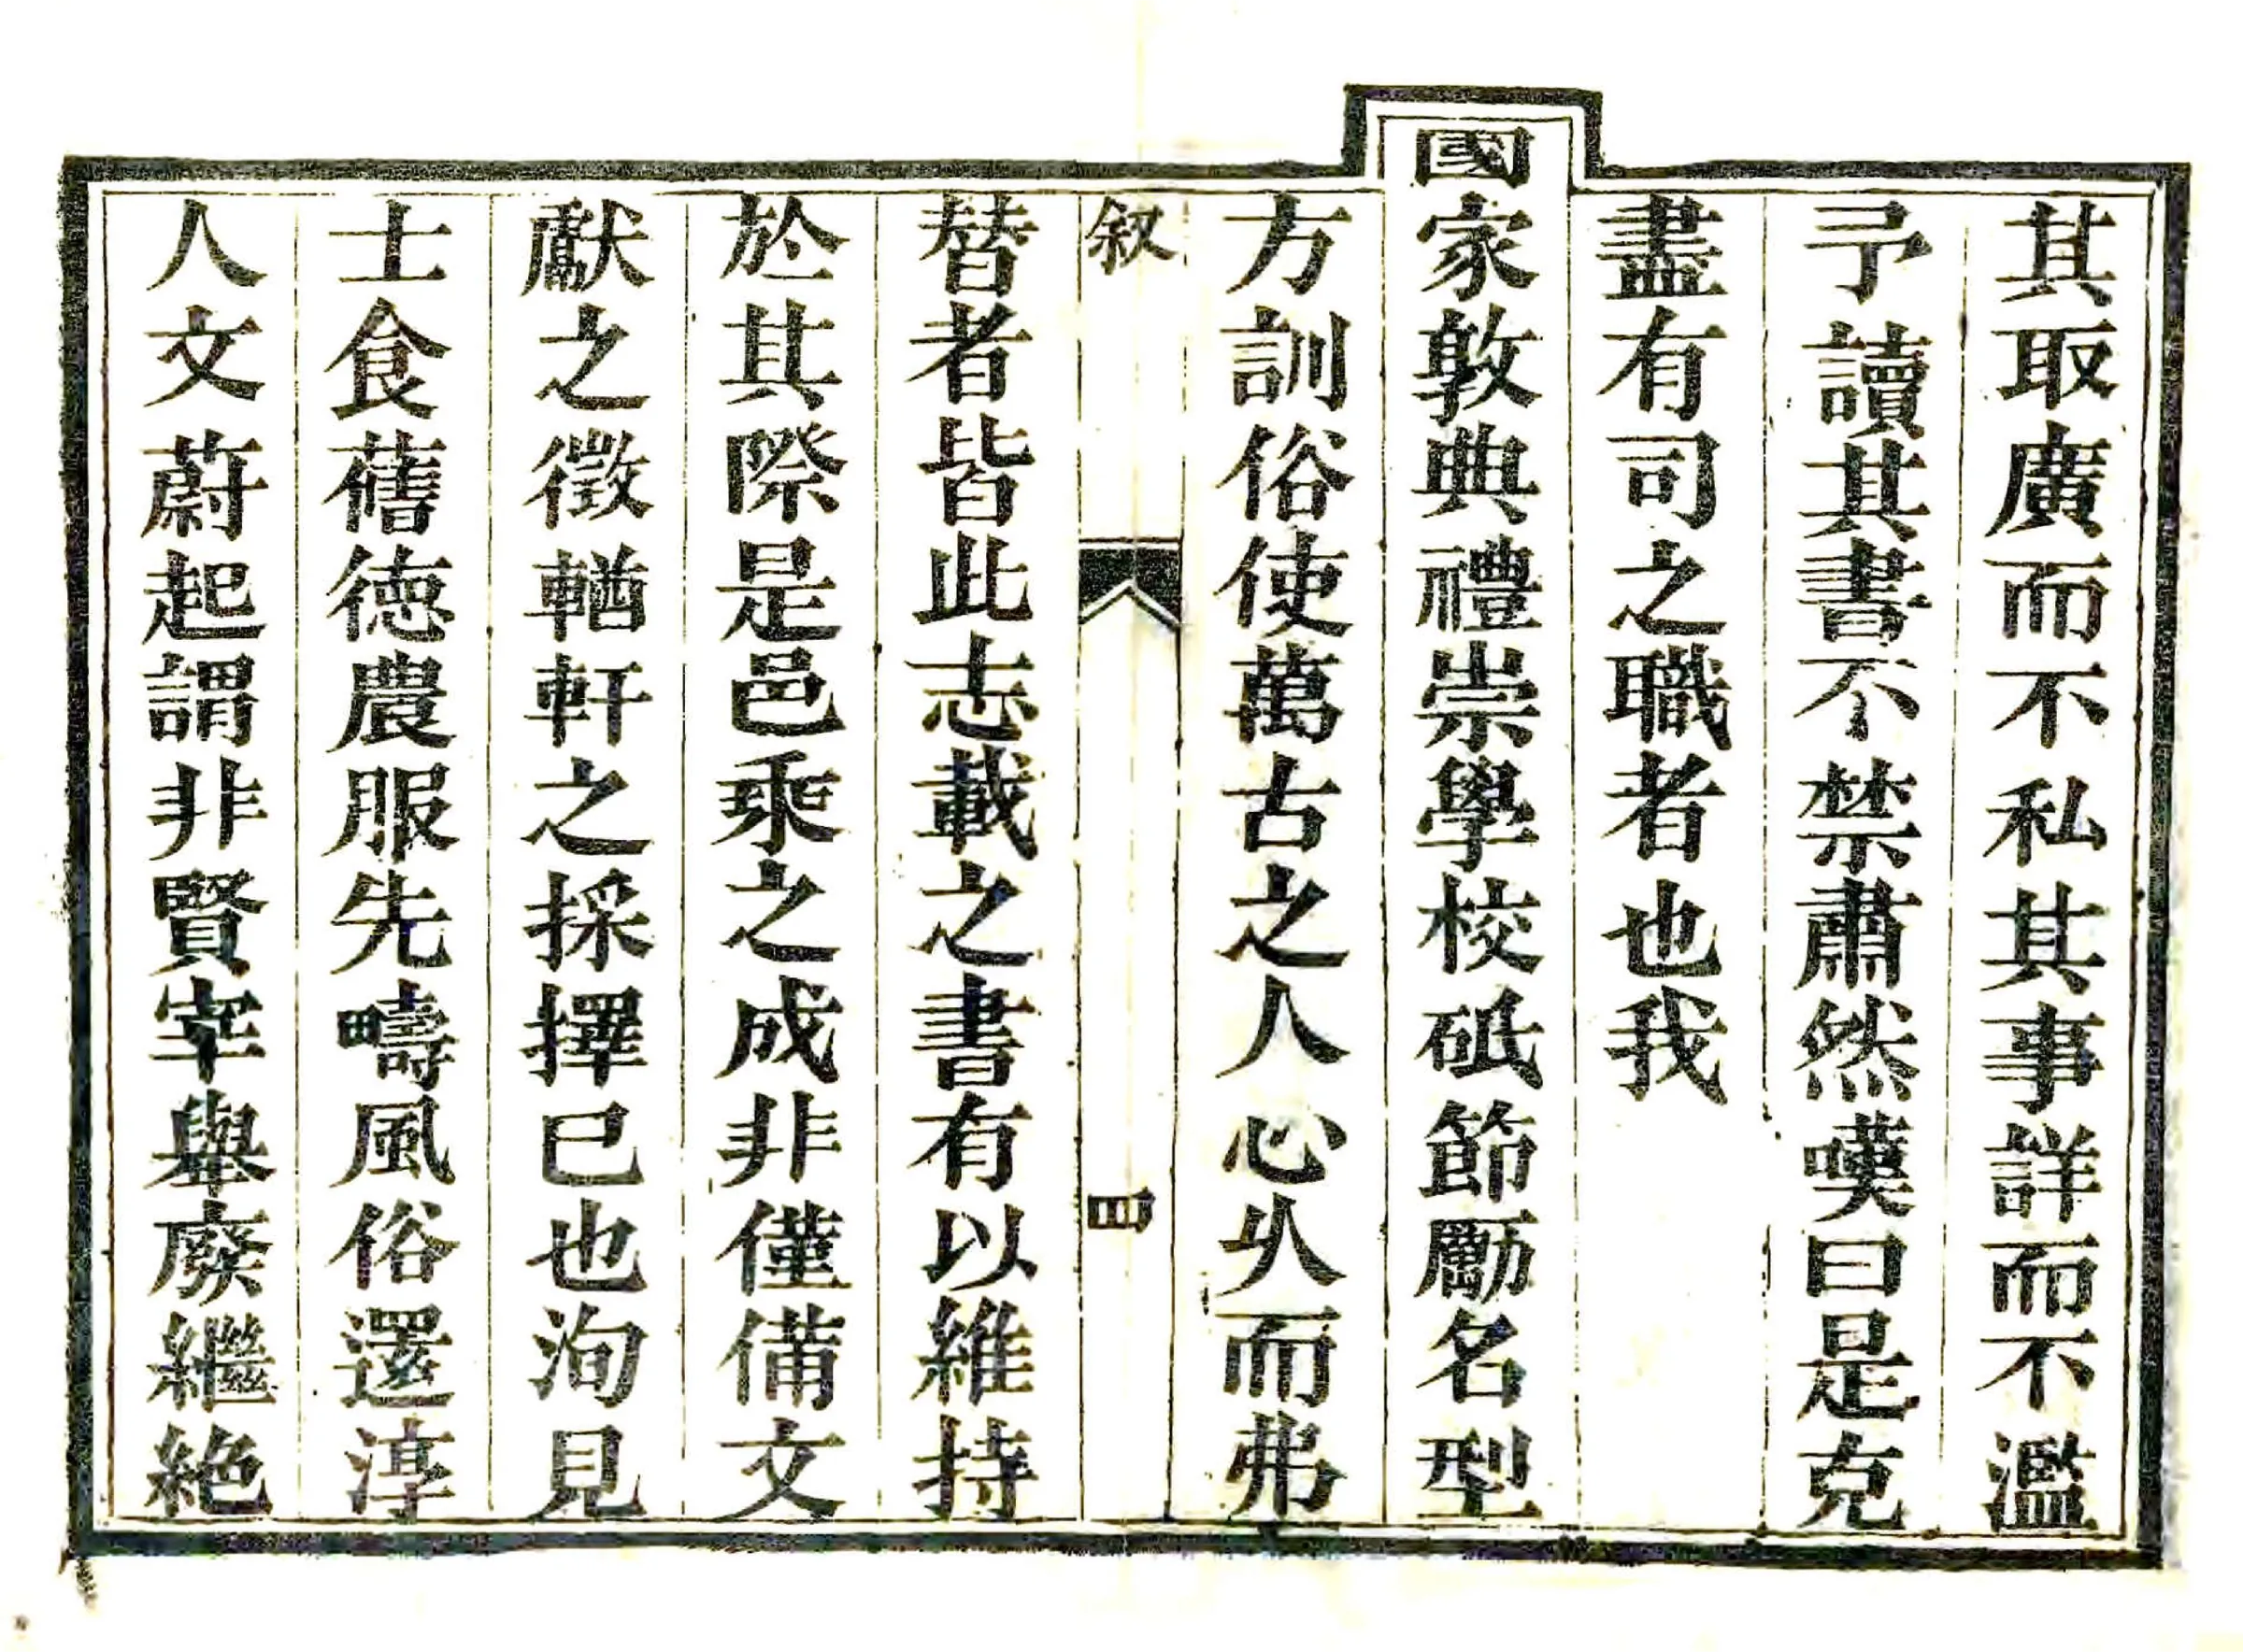 其取廣而不私其事詳而不濫
予讀其書不禁肅然嘆曰是克
盡有司之職者也我
國家敦典禮崇學校砥節勵名型
方訓俗使萬古之人心㕥而弗
叙 四
替者皆此志載之書有以維持
於其際是邑乘之成非僅備文
獻之徵輶軒之採擇已也洵見
士食舊德農服先疇風俗還淳
人文蔚起謂非賢宰舉廢繼絶